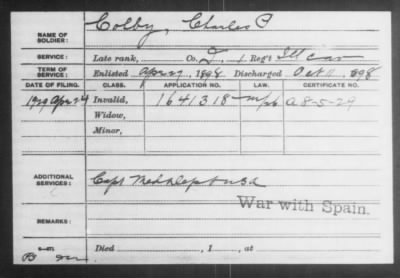 NAME OF SOLDIER: Colby, Charles P
SERVICE: Late rank, Co. D, 1 Reg't Ill Cav
TERM OF SERVICE: Enlisted Apr 27, 1898 Discharged Oct 11, 1898
DATE OF FILING. CLASS. APPLICATION NO. LAW. CERTIFICATE NO.
1929 Apr 24 Invalid, 1641318 A 8-5-29
Widow,
Minor,
ADDITIONAL SERVICES: Capt Med Dept USA
War with Spain.
REMARKS:
Died , 1 , at